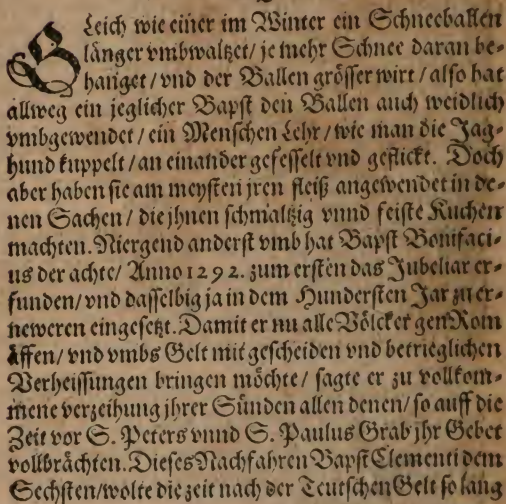 Gleich wie einer im Winter ein Schneeballen
länger vmbwaltzet / je mehr Schnee daran be-
hanget / vnd der Ballen grösser wirt / also hat
allweg ein jeglicher Bapst den Ballen auch weidlich
vmbgewendet / ein Menschen Lehr / wie man die Jag-
hund kuppelt / an einander gefesselt vnd geflickt. Doch
aber haben sie am meysten jren fleiß angewendet in de-
nen Sachen / die jhnen schmaltzig vnnd feiste Kuchen
machten. Niergend anderst vmb hat Bapst Bonifaci-
us der achte / Anno 1292. zum ersten das Jubeliar er-
funden / vnd dasselbig ja in dem Hundersten Jar zu er-
neweren eingesetzt. Damit er nu alle Völcker gen Rom
äffen / vnd vmbs Gelt mit gescheiden vnd betrieglichen
Verheissungen bringen möchte / sagte er zu vollkom-
mene verzeihung jhrer Sünden allen denen / so auff die
Zeit vor S. Peters vnnd S. Paulus Grab jhr Gebet
vollbrächten. Dieses Nachfahren Bapst Clementi dem
Sechsten / wolte die zeit nach der Teutschen Gelt so lang